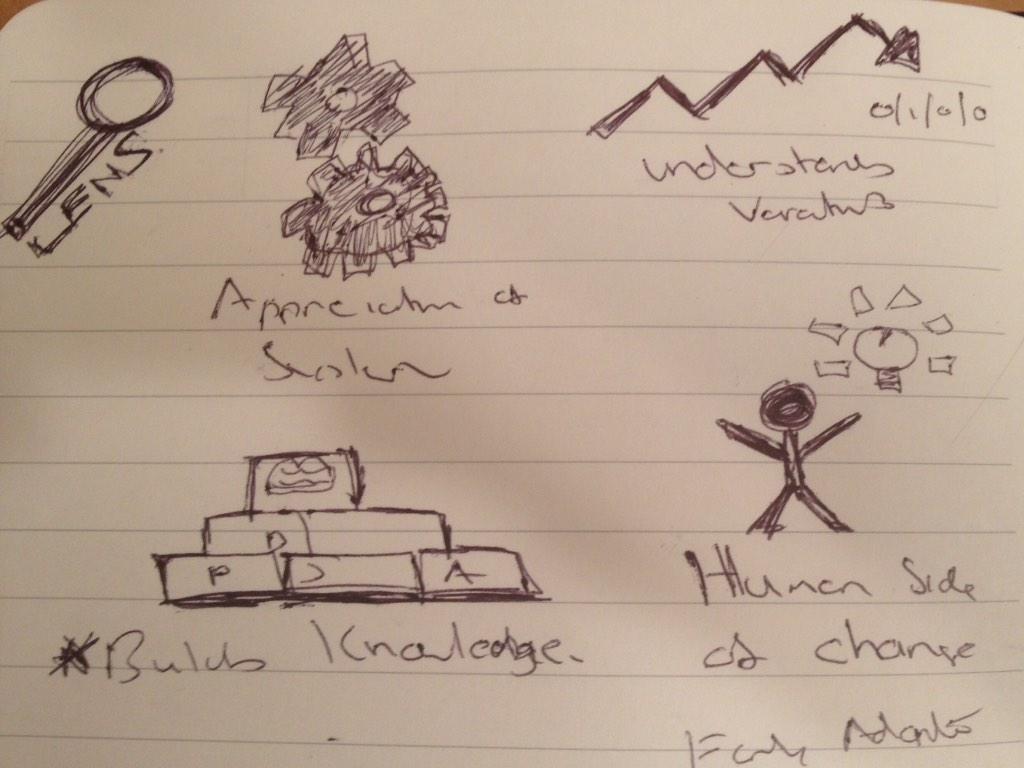 LENS
0/1/0/0
understands
Appreciation of
System
D
P S A
*Builds Knowledge.
Human Side
of change
Early